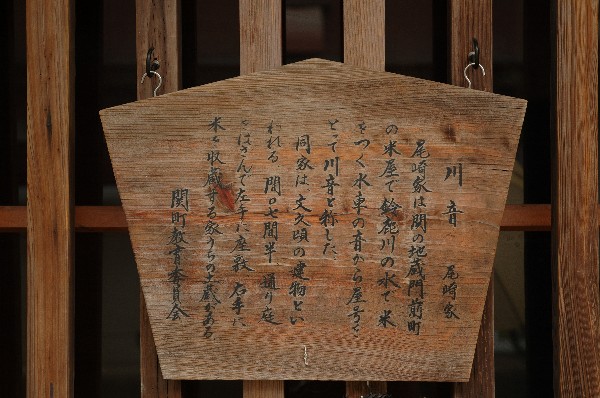 川音
尾崎家
尾崎家は関の地蔵門前町
の米屋で鈴鹿川の水で米
をつく水車の音から屋号を
とって川音と称した、
同家は、文久頃の建物とい
われる 間口七間半、通り庭
をはさんで左手に座敷 右手に
米を収蔵する家うちの土蔵がある
関町教育委員会